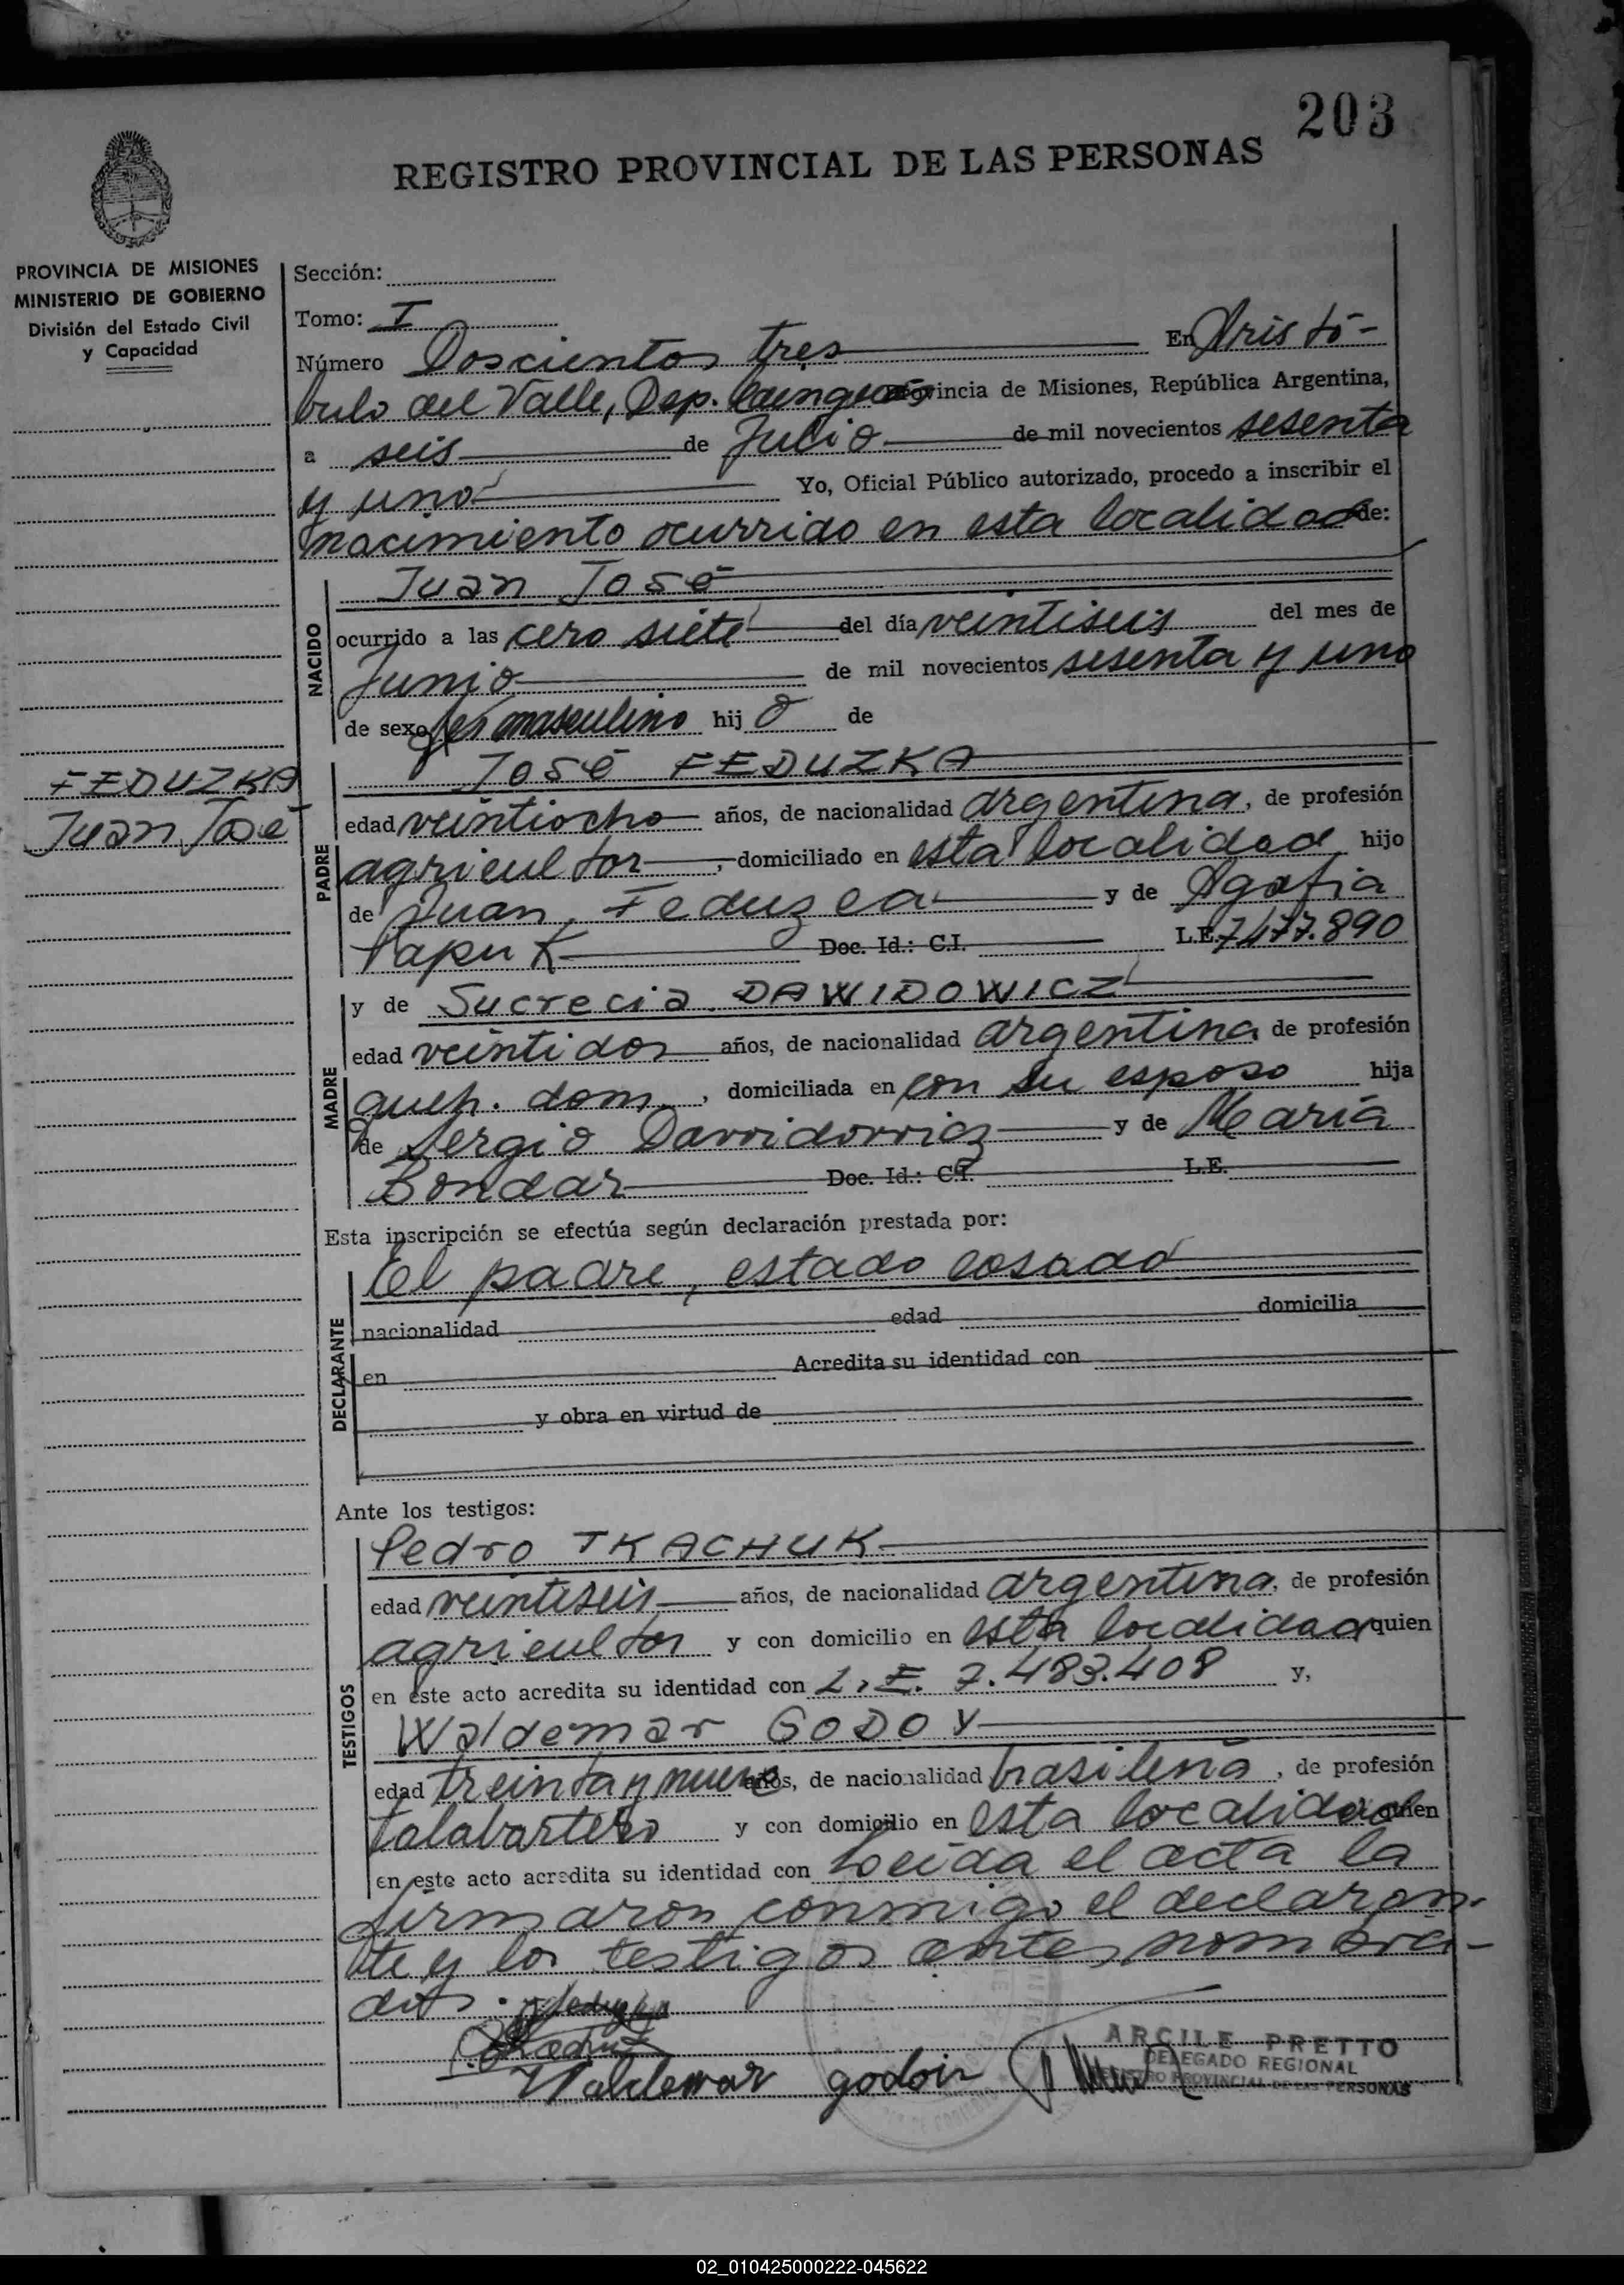 203
REGISTRO PROVINCIAL DE LAS PERSONAS
PROVINCIA DE MISIONES
MINISTERIO DE GOBIERNO
División del Estado Civil
y Capacidad
Sección:
Tomo: I
Número Doscientos tres En Aristó-
bulo del Valle, Dep. Cainguás Provincia de Misiones, República Argentina,
a seis de Julio de mil novecientos sesenta
y uno Yo, Oficial Público autorizado, procedo a inscribir el
nacimiento ocurrido en esta localidad de:
NACIDO
Juan José
ocurrido a las cero siete del día veintiseis del mes de
Junio de mil novecientos sesenta y uno
de sexo masculino hij o de
FEDUZKA
Juan José
PADRE
José FEDUZKA
edad veintiocho años, de nacionalidad argentina, de profesión
agricultor, domiciliado en esta localidad hijo
de Juan Feduzca y de Agafia
Papuk Doc. Id.: C.I. L.E. 7477.890
MADRE
y de Sucrecia DAWIDOWICZ
edad veintidos años, de nacionalidad argentina de profesión
queh. dom., domiciliada en con su esposo hija
de Sergio Dawidowicz y de María
Bondar Doc. Id.: C.I. L.E.
Esta inscripción se efectúa según declaración prestada por:
DECLARANTE
El padre, estado casado
nacionalidad edad domicilia
en Acredita su identidad con
y obra en virtud de
Ante los testigos:
TESTIGOS
Pedro TKACHUK
edad veintiseis años, de nacionalidad argentina, de profesión
agricultor y con domicilio en esta localidad quien
en este acto acredita su identidad con L.E. 7.483.408 y,
Waldemar GODOY
edad treinta y nueve años, de nacionalidad brasileña, de profesión
talabartero y con domicilio en esta localidad quien
en este acto acredita su identidad con Leida el acta la
firmaron conmigo el declaran-
te y los testigos antes nombra-
dos.
Waldemar godoir
ARCILE PRETTO
DELEGADO REGIONAL
REGISTRO PROVINCIAL DE LAS PERSONAS
02_010425000222-045622